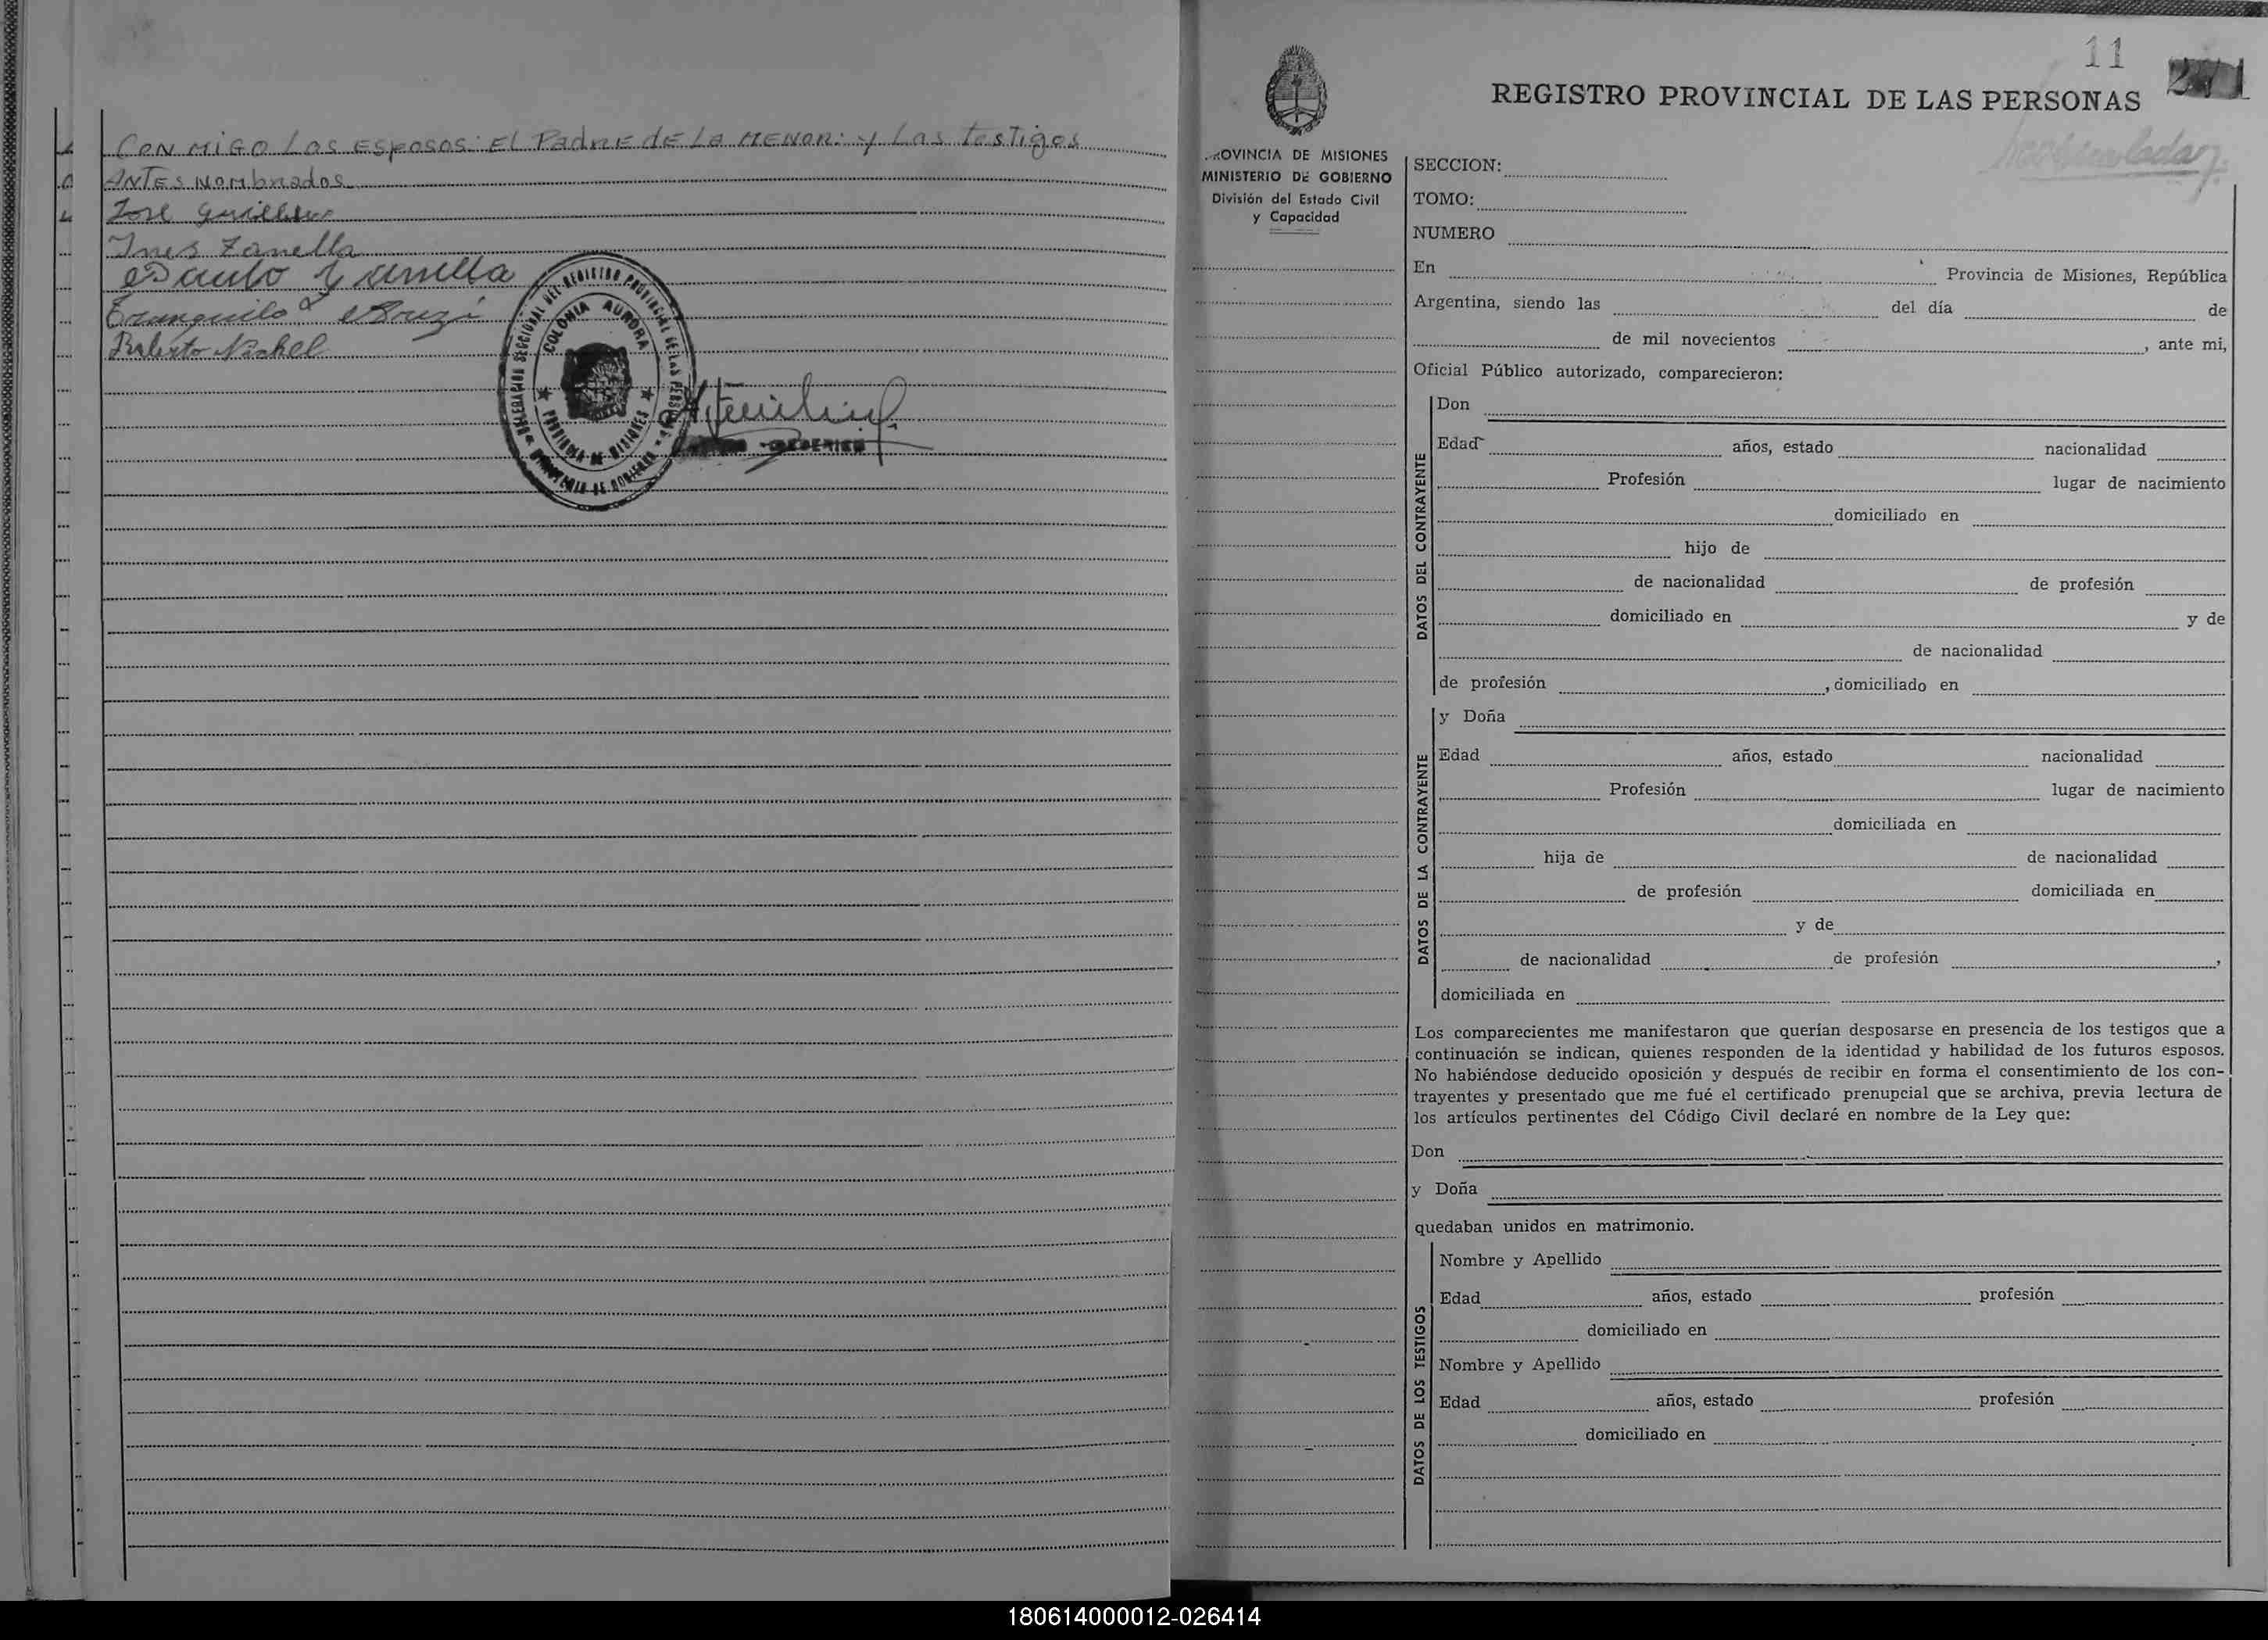 CON MIGO Los ESPOSOS: El Padre de La MENOR: y Los Testigos
ANTES Nombrados
José
Ines Zanella
Zanella
Tranquilo
Roberto Nickel
DELEGACION SECCIONAL DEL REGISTRO PROVINCIAL DE LAS PERSONAS
COLONIA AURORA
PROVINCIA DE MISIONES
MINISTERIO DE GOBIERNO
FEDERICO
11
271
REGISTRO PROVINCIAL DE LAS PERSONAS
PROVINCIA DE MISIONES
MINISTERIO DE GOBIERNO
División del Estado Civil
y Capacidad
SECCION:
TOMO:
NUMERO
En Provincia de Misiones, República
Argentina, siendo las del día de
de mil novecientos , ante mi,
Oficial Público autorizado, comparecieron:
DATOS DEL CONTRAYENTE
Don
Edad años, estado nacionalidad
Profesión lugar de nacimiento
domiciliado en
hijo de
de nacionalidad de profesión
domiciliado en y de
de nacionalidad
de profesión , domiciliado en
DATOS DE LA CONTRAYENTE
y Doña
Edad años, estado nacionalidad
Profesión lugar de nacimiento
domiciliada en
hija de de nacionalidad
de profesión domiciliada en
y de
de nacionalidad de profesión ,
domiciliada en
Los comparecientes me manifestaron que querían desposarse en presencia de los testigos que a
continuación se indican, quienes responden de la identidad y habilidad de los futuros esposos.
No habiéndose deducido oposición y después de recibir en forma el consentimiento de los con-
trayentes y presentado que me fué el certificado prenupcial que se archiva, previa lectura de
los artículos pertinentes del Código Civil declaré en nombre de la Ley que:
Don
y Doña
quedaban unidos en matrimonio.
DATOS DE LOS TESTIGOS
Nombre y Apellido
Edad años, estado profesión
domiciliado en
Nombre y Apellido
Edad años, estado profesión
domiciliado en
180614000012-026414